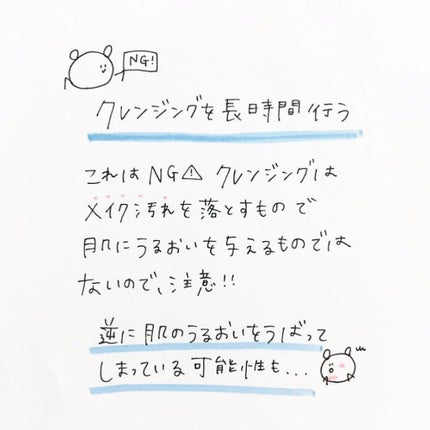 NG!
クレンジングを長時間行う
これはNG⚠クレンジングは
メイク汚れを落とすもので
肌にうるおいを与えるものでは
ないので、注意!!
逆に肌のうるおいをうばって
しまっている可能性も...